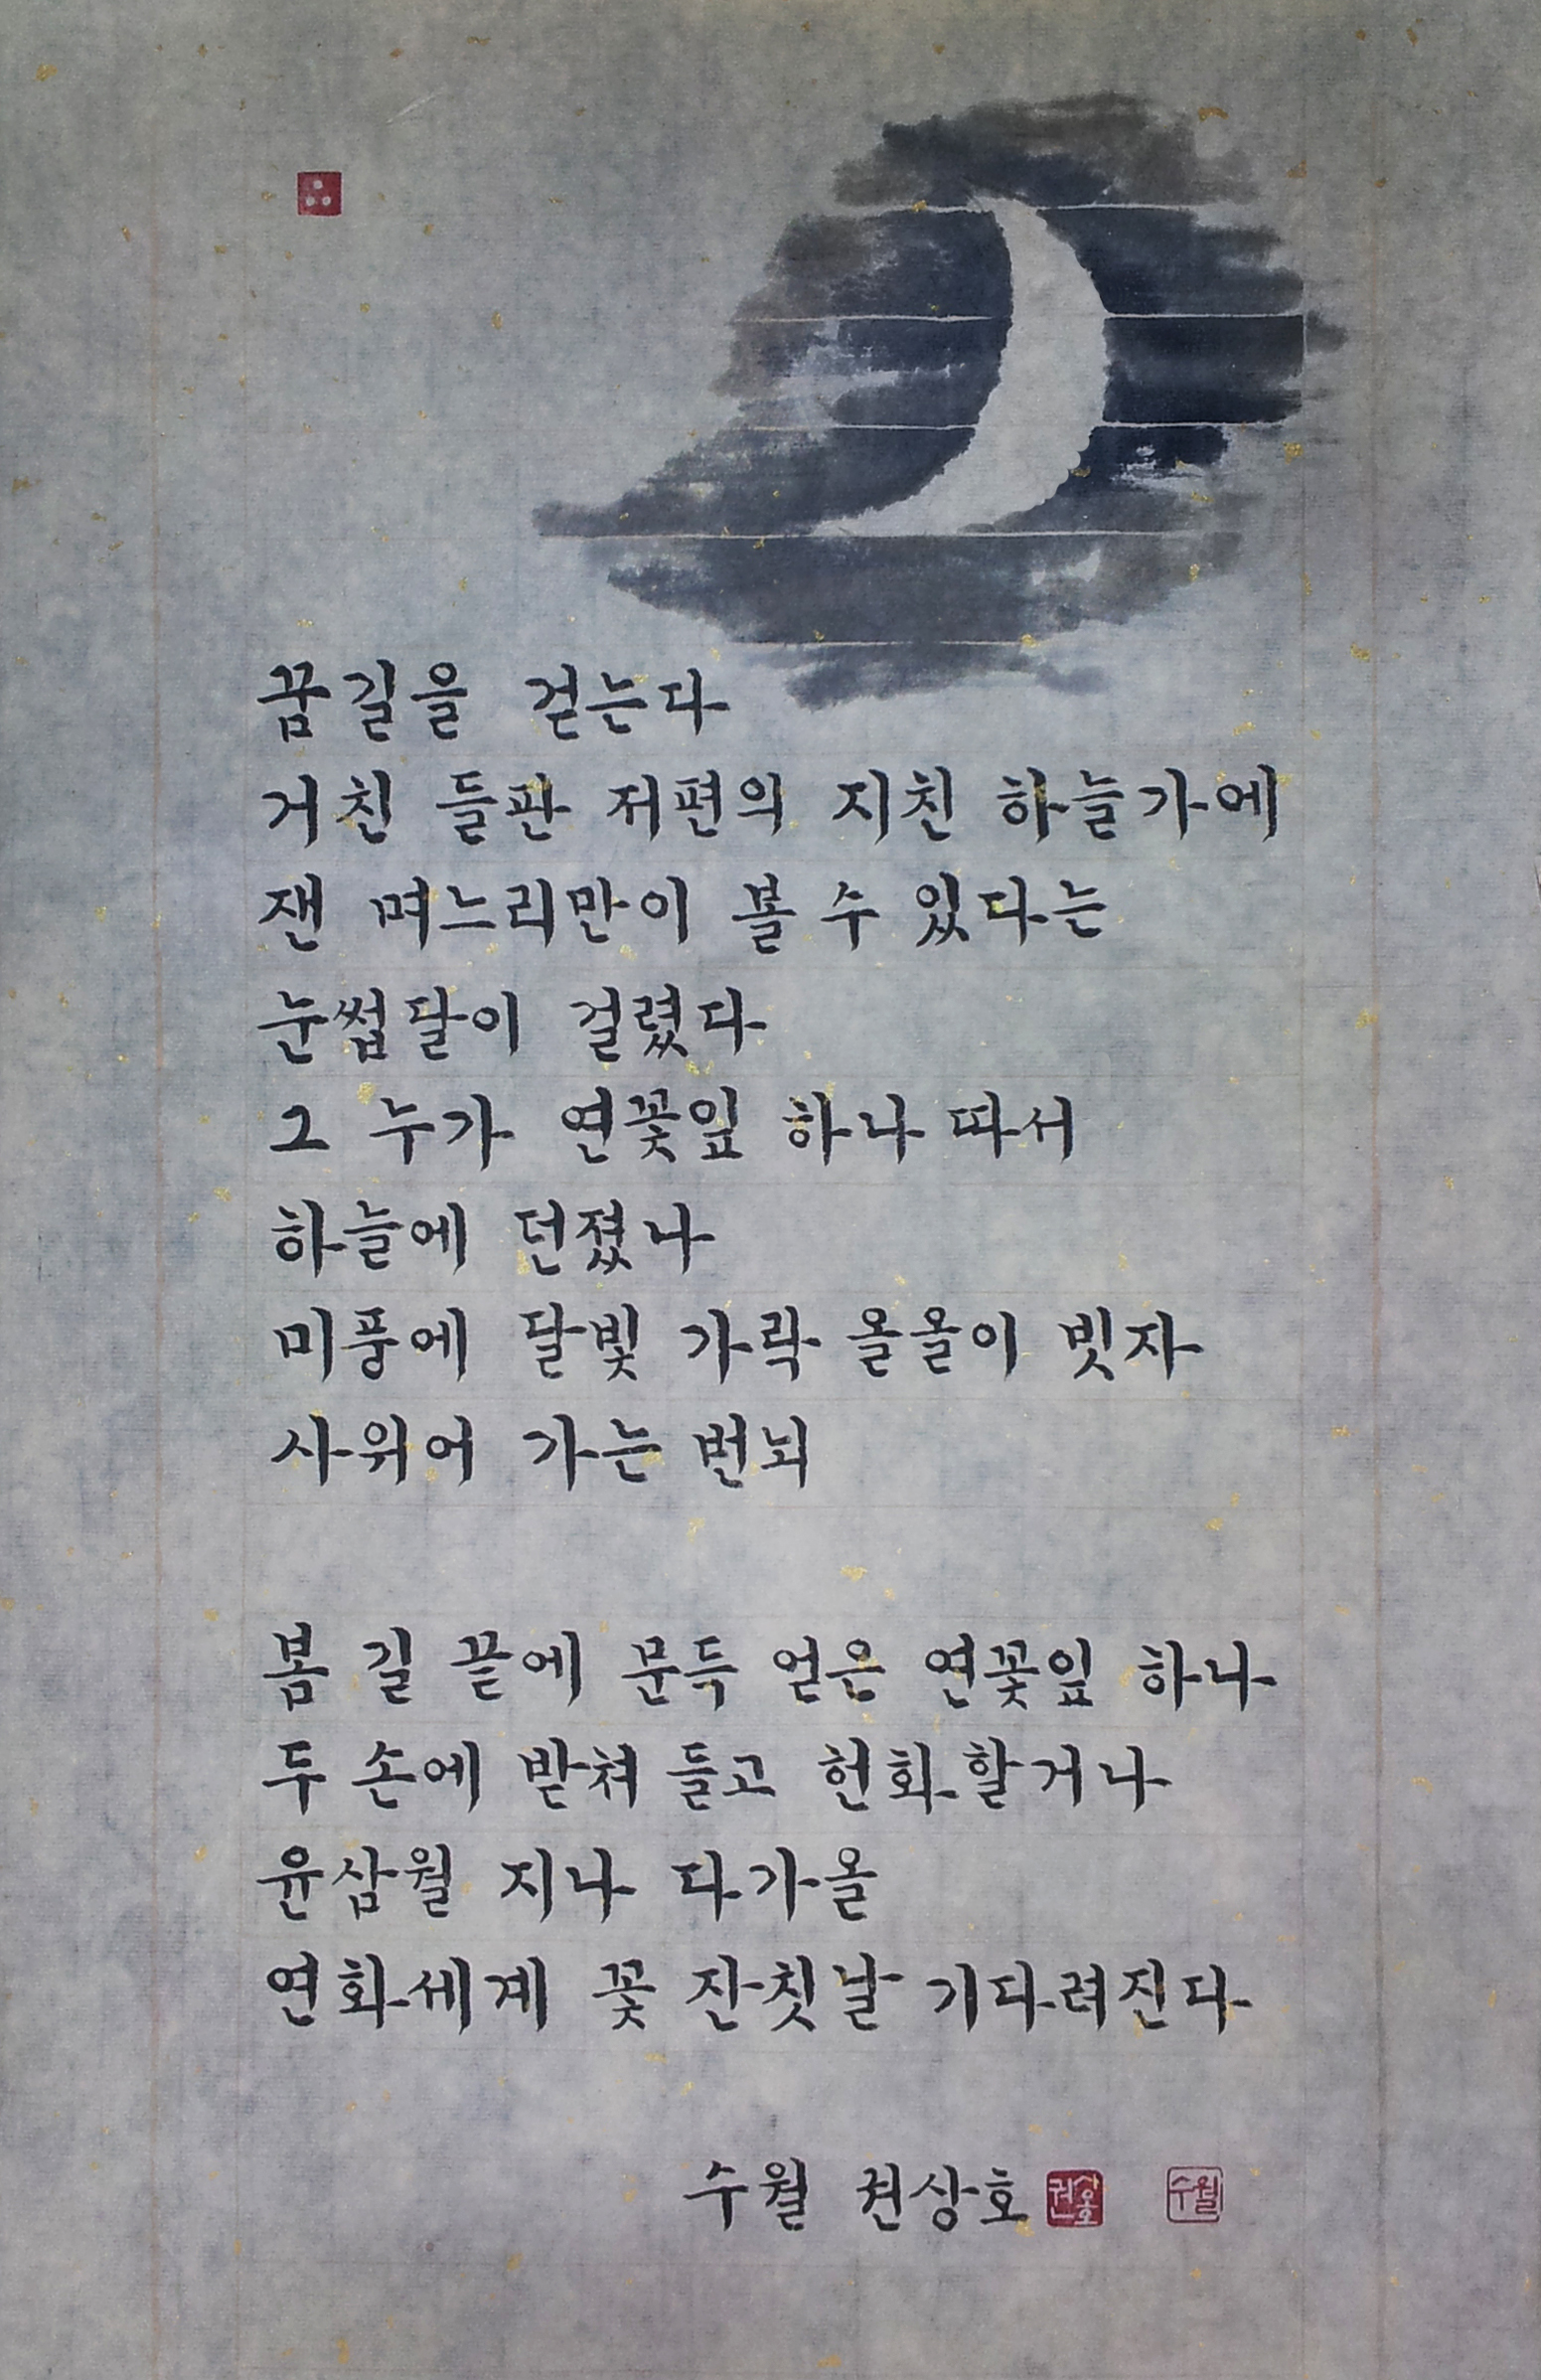 꿈길을 걷는다
거친 들판 저편의 지친 하늘가에
잰 며느리만이 볼 수 있다는
눈썹달이 걸렸다
그 누가 연꽃잎 하나 따서
하늘에 던졌나
미풍에 달빛 가락 올올이 빗자
사위어 가는 번뇌
봄 길 끝에 문득 얻은 연꽃잎 하나
두 손에 받쳐 들고 헌화할거나
윤삼월 지나 다가올
연화세계 꽃 잔칫날 기다려진다
수월 권상호
권상호
수월